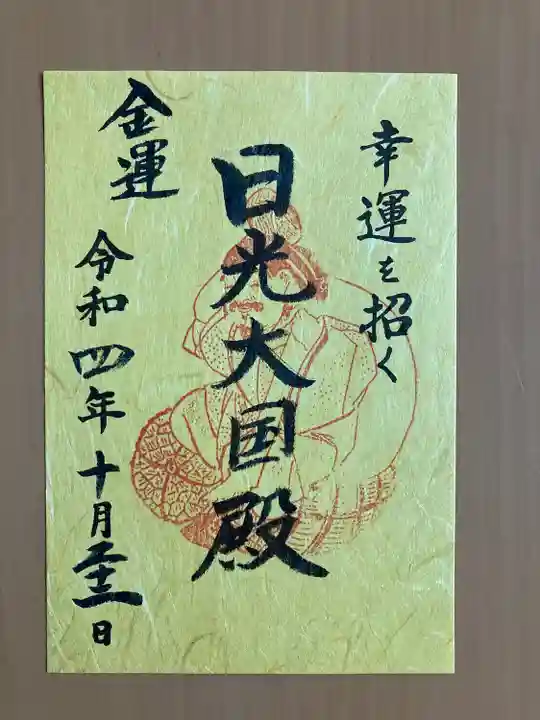 幸運を招く
日光大国殿
金運
令和四年十月二十二日